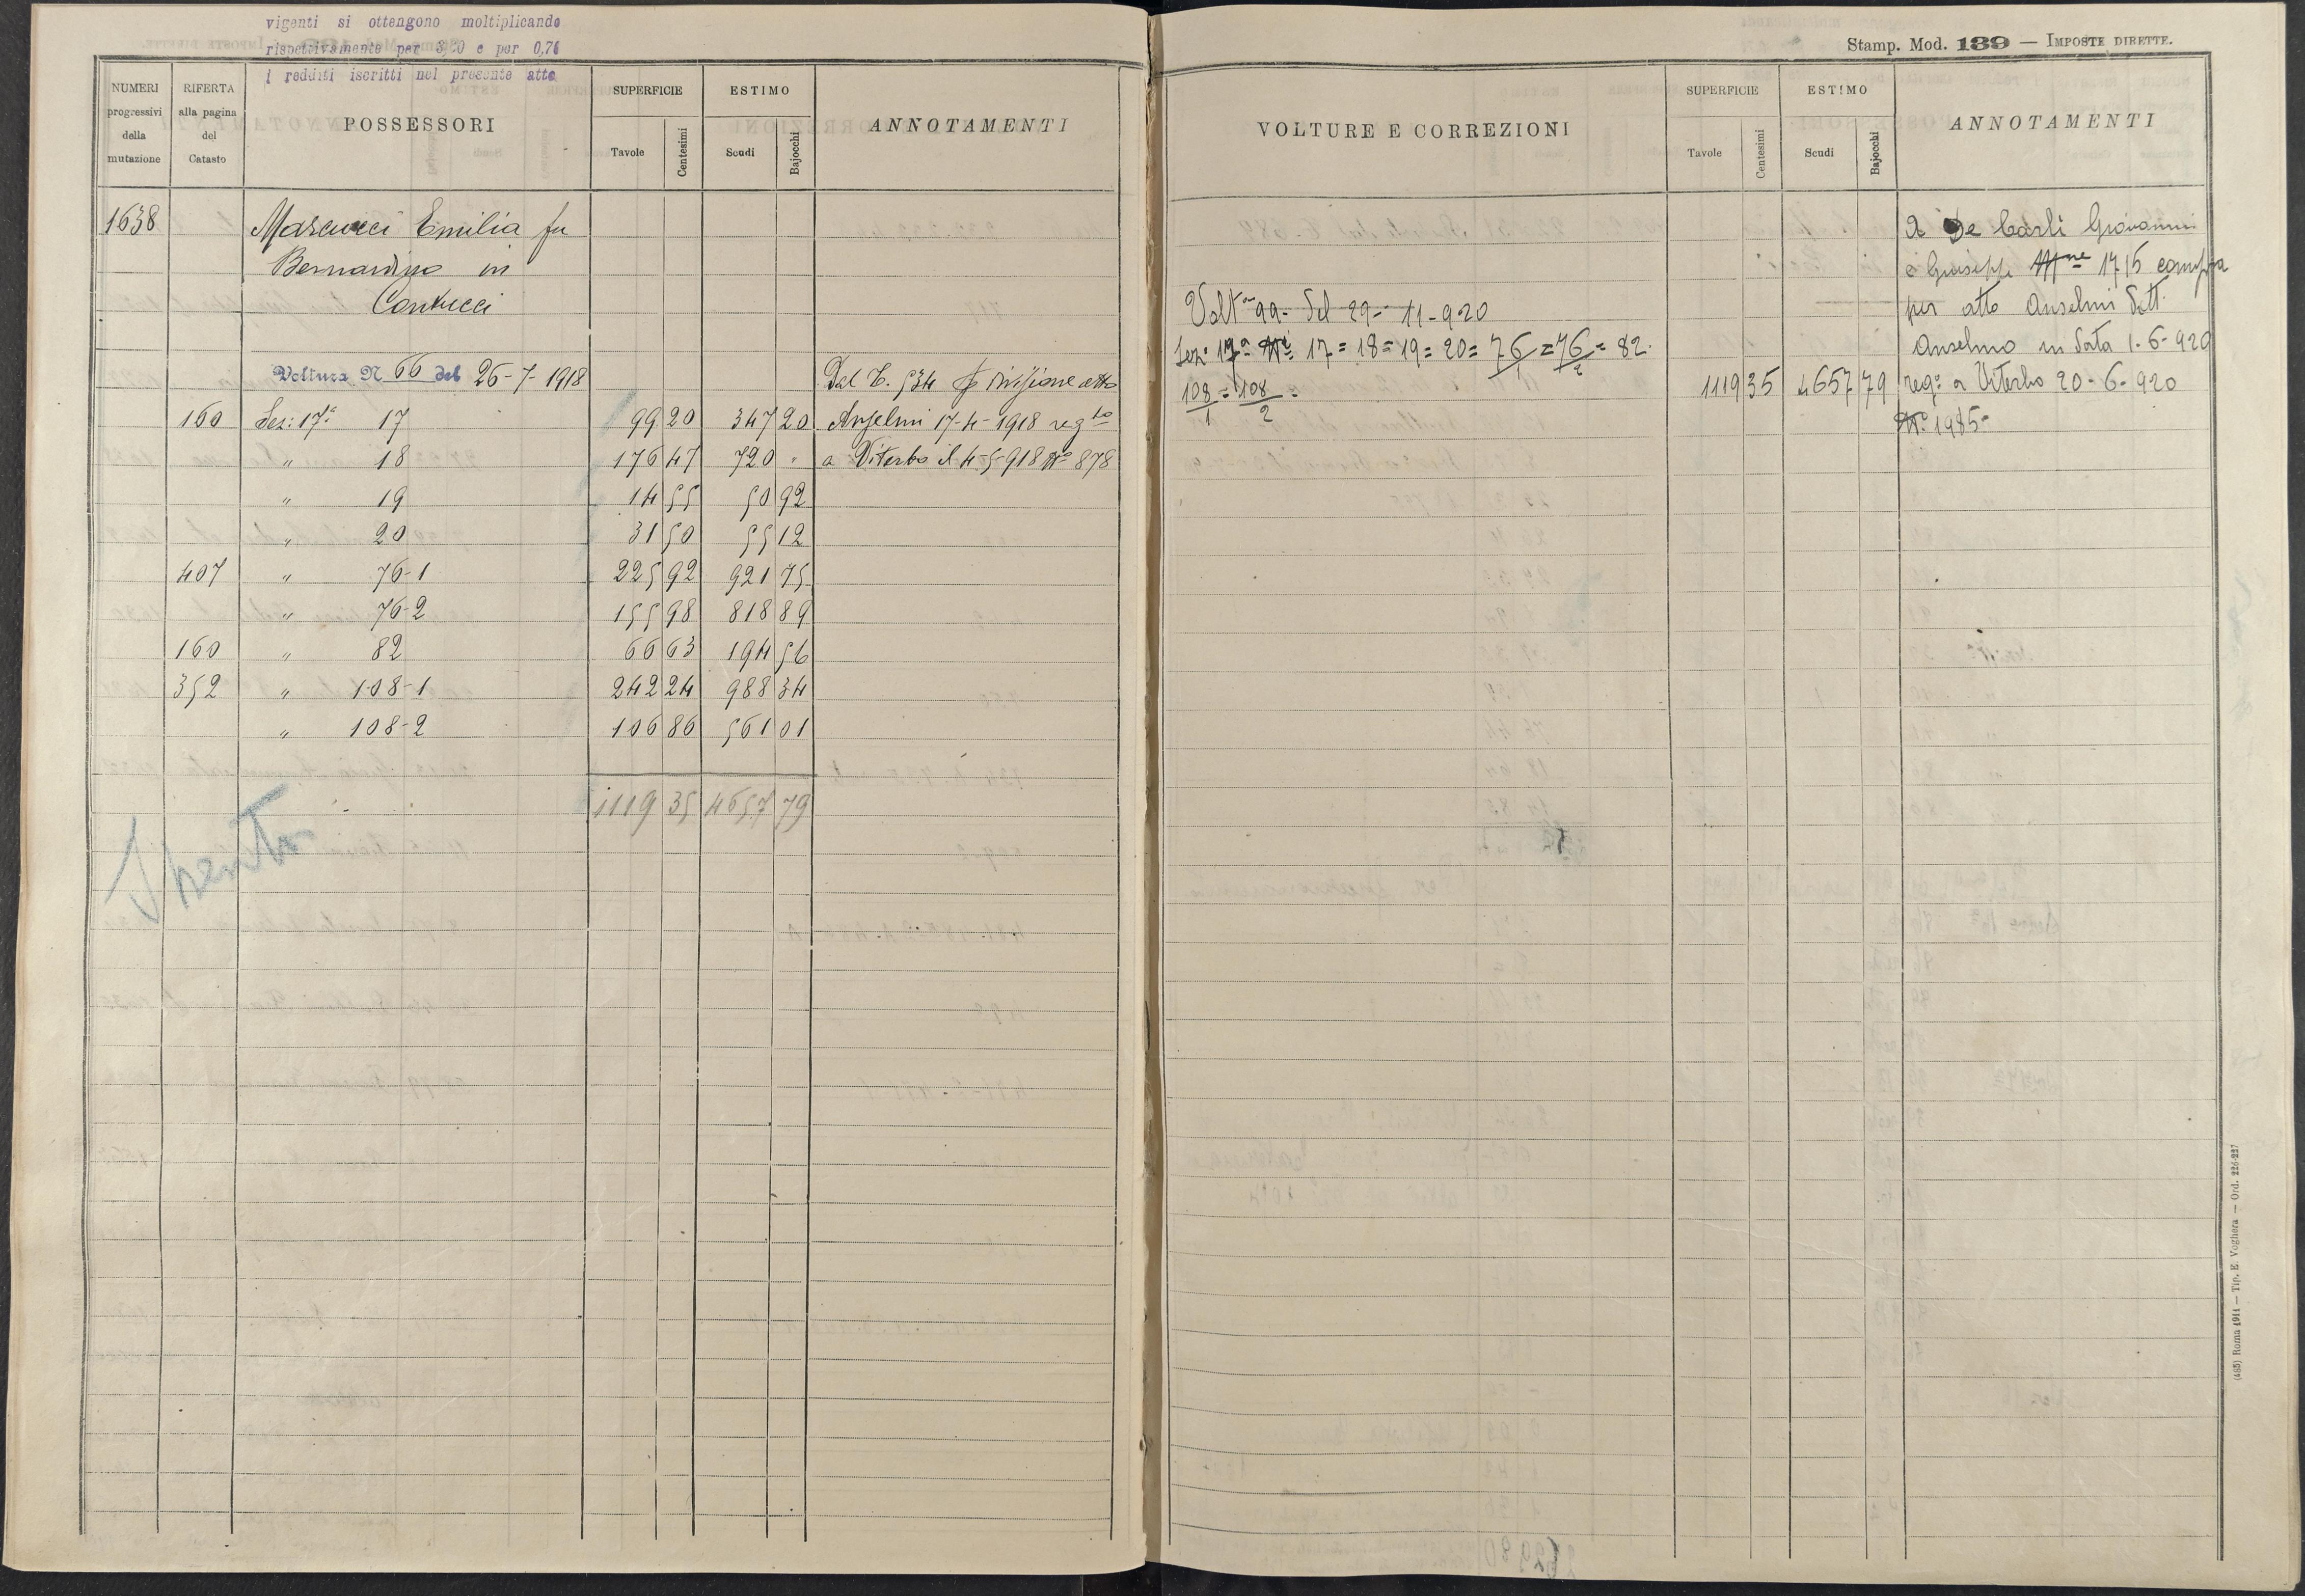 vigenti si ottengono moltiplicando
rispettivamente per 3,20 e per 0,76
i redditi iscritti nel presente atto
NUMERI progressivi della mutazione
RIFERTA alla pagina del Catasto
POSSESSORI
SUPERFICIE
Tavole
Centesimi
ESTIMO
Scudi
Bajocchi
ANNOTAMENTI
1638 Marcucci Emilia fu
Bernardino in
Contucci
Voltura N. 66 del 26-7-1918 Dal C. 534 p divisione atto
160 Sez: 17ª 17 99 20 347 20 Anselmi 17-4-1918 regto
" 18 176 47 720 " a Viterbo il 4-5-918 No 878
" 19 14 55 50 92
" 20 31 50 55 12
407 " 76-1 225 92 921 75
" 76-2 155 98 818 89
160 " 82 66 63 194 56
352 " 108-1 242 24 988 34
" 108-2 106 86 561 01
1119 35 4657 79
Spento
Stamp. Mod. 139 — IMPOSTE DIRETTE.
VOLTURE E CORREZIONI
SUPERFICIE
Tavole
Centesimi
ESTIMO
Scudi
Bajocchi
ANNOTAMENTI
A De Carli Giovanni
e Giuseppe 1715 compra
Voltª 99- del 29- 11-920 per atto Anselmi Dott.
Sez: 17ª Ni 17 = 18 = 19 = 20 = 76/1 = 76/2 = 82. Anselmo in data 1-6-920
108/1 = 108/2 = 1119 35 4657 79 rego a Viterbo 20-6-920
No 1985-
(485) Roma 1911 — Tip. E. Voghera — Ord. 226-227